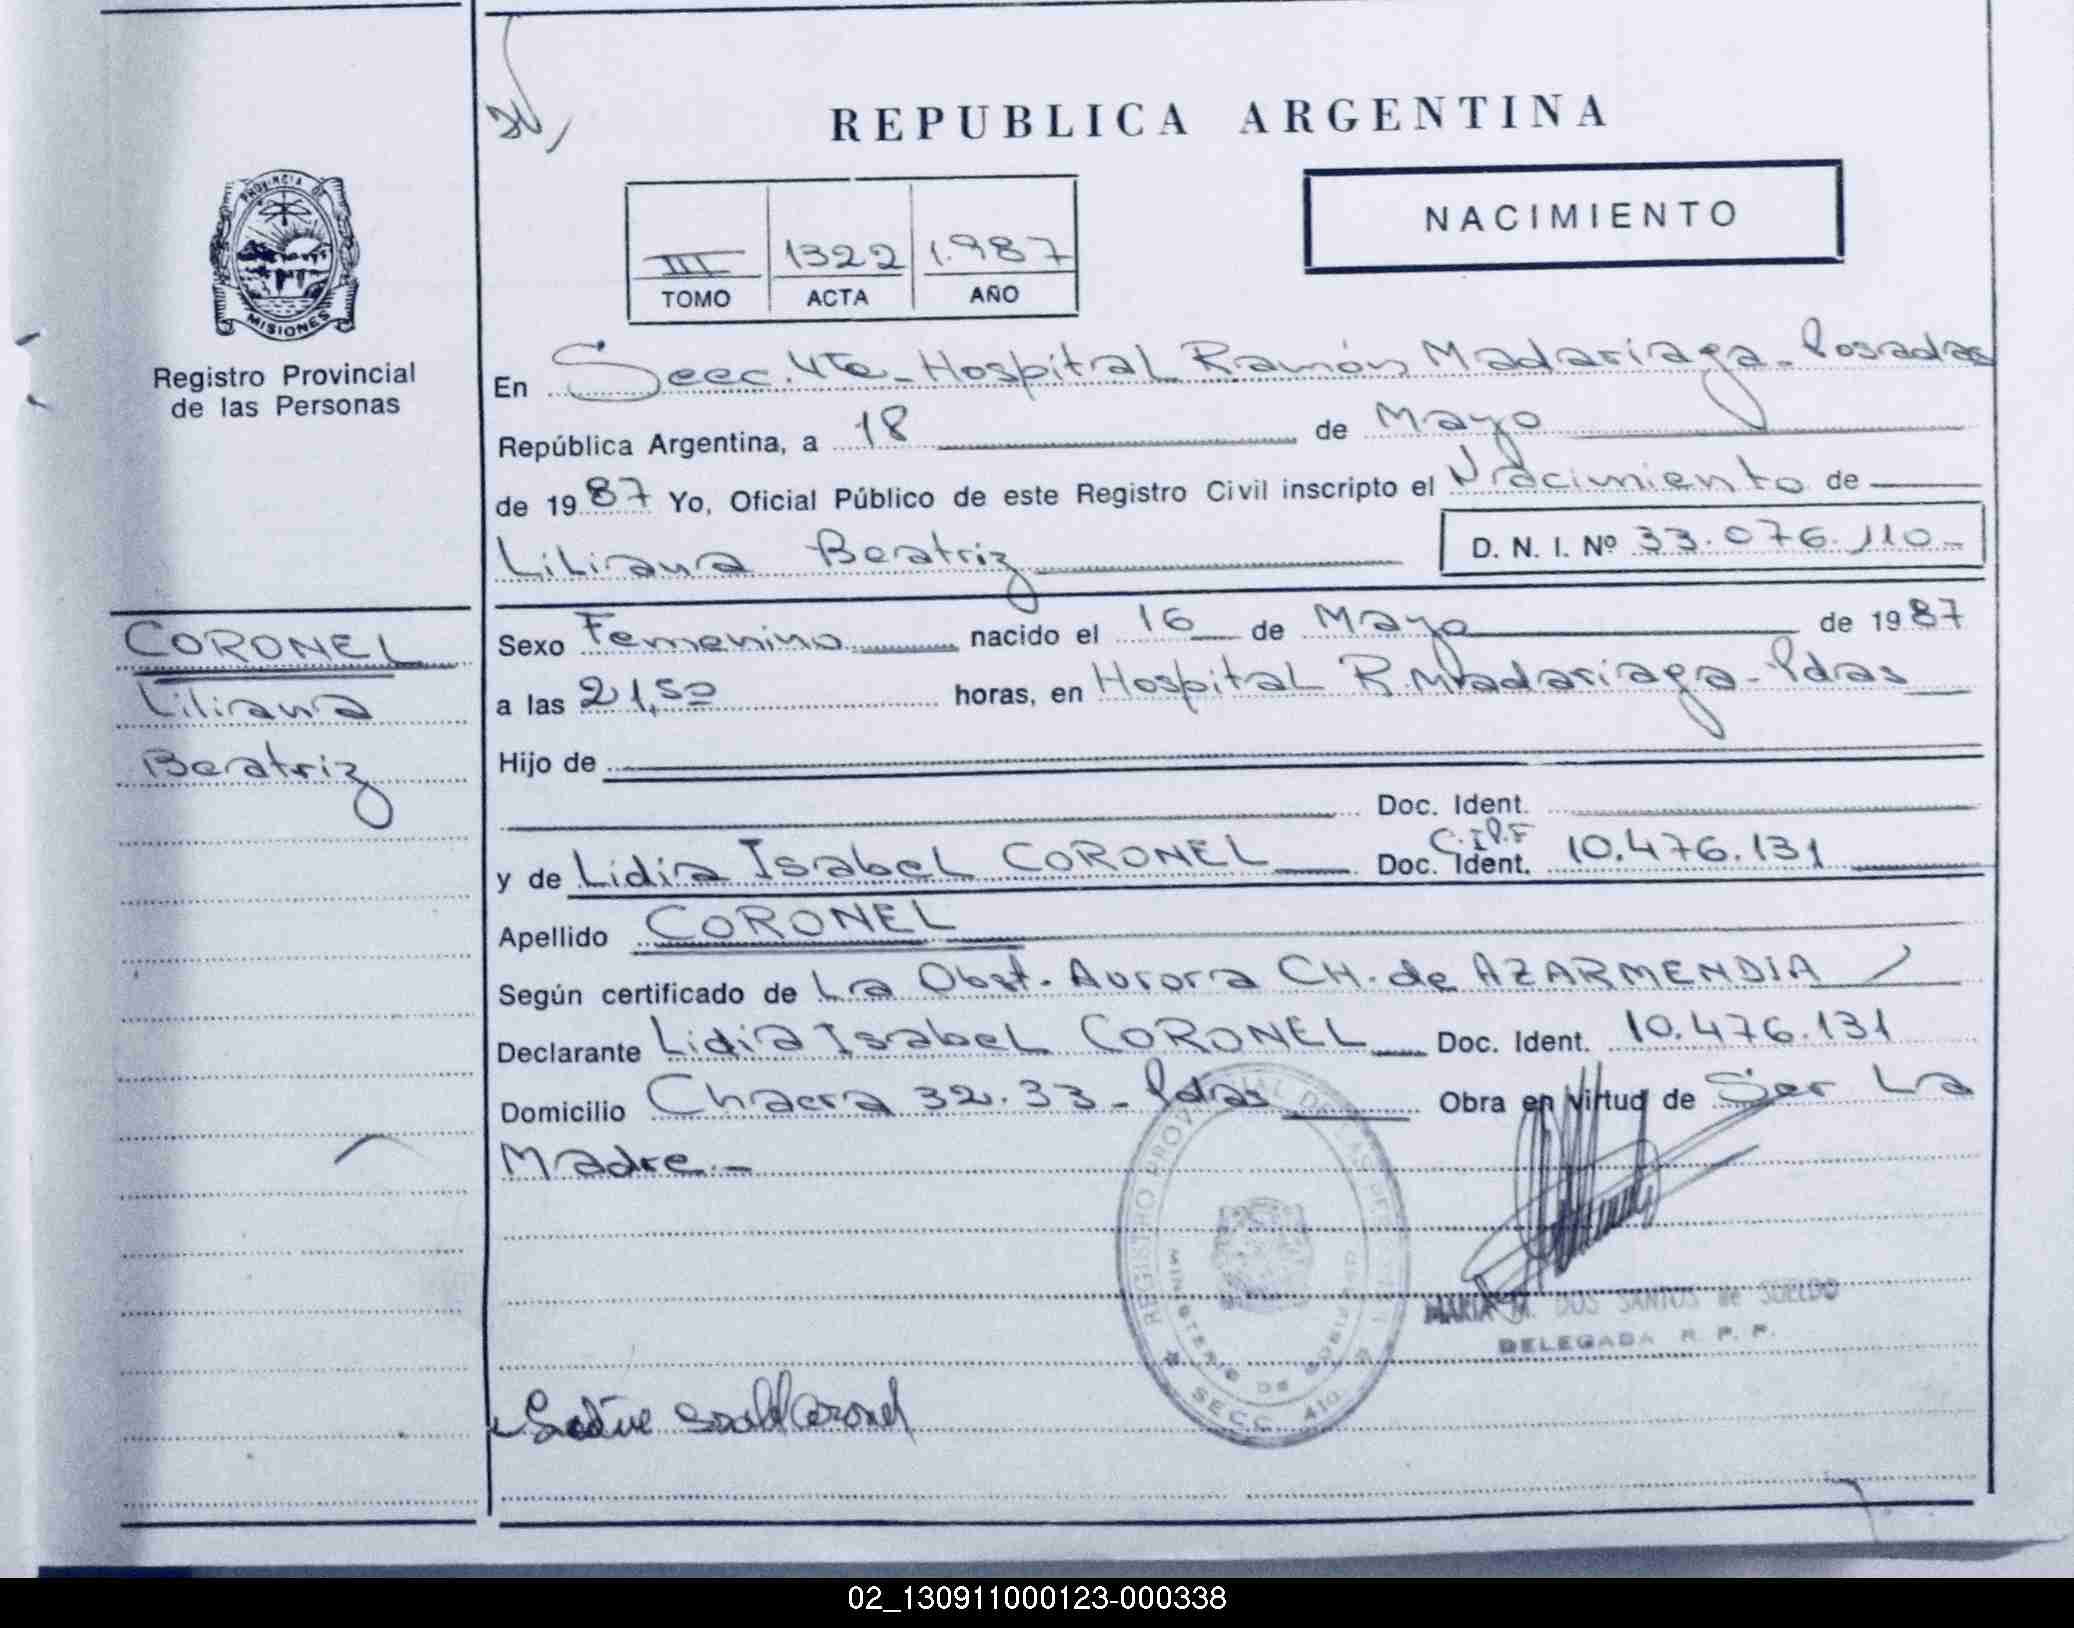 REPUBLICA ARGENTINA
NACIMIENTO
III 1322 1.987
TOMO ACTA AÑO
PROVINCIA DE
MISIONES
Registro Provincial
de las Personas
CORONEL
Liliana
Beatriz
En Secc. 4ta - Hospital Ramón Madariaga - Posadas
República Argentina, a 18 de Mayo
de 1987 Yo, Oficial Público de este Registro Civil inscripto el Nacimiento de
Liliana Beatriz D. N. I. Nº 33.076.110-
Sexo Femenino nacido el 16 de Mayo de 1987
a las 21,50 horas, en Hospital R. Madariaga - Pdas
Hijo de
Doc. Ident.
C.I.P.F
y de Lidia Isabel CORONEL Doc. Ident. 10.476.131
Apellido CORONEL
Según certificado de La Obst. Aurora CH. de AZARMENDIA
Declarante Lidia Isabel CORONEL Doc. Ident. 10.476.131
Domicilio Chacra 32.33 - Pdas Obra en virtud de Ser La
Madre.-
REGISTRO PROVINCIAL DE LAS PERSONAS
MINISTERIO DE GOBIERNO
SECC. 4ta
MARIA M. DOS SANTOS de SUELDO
DELEGADA R. P. P.
02_130911000123-000338